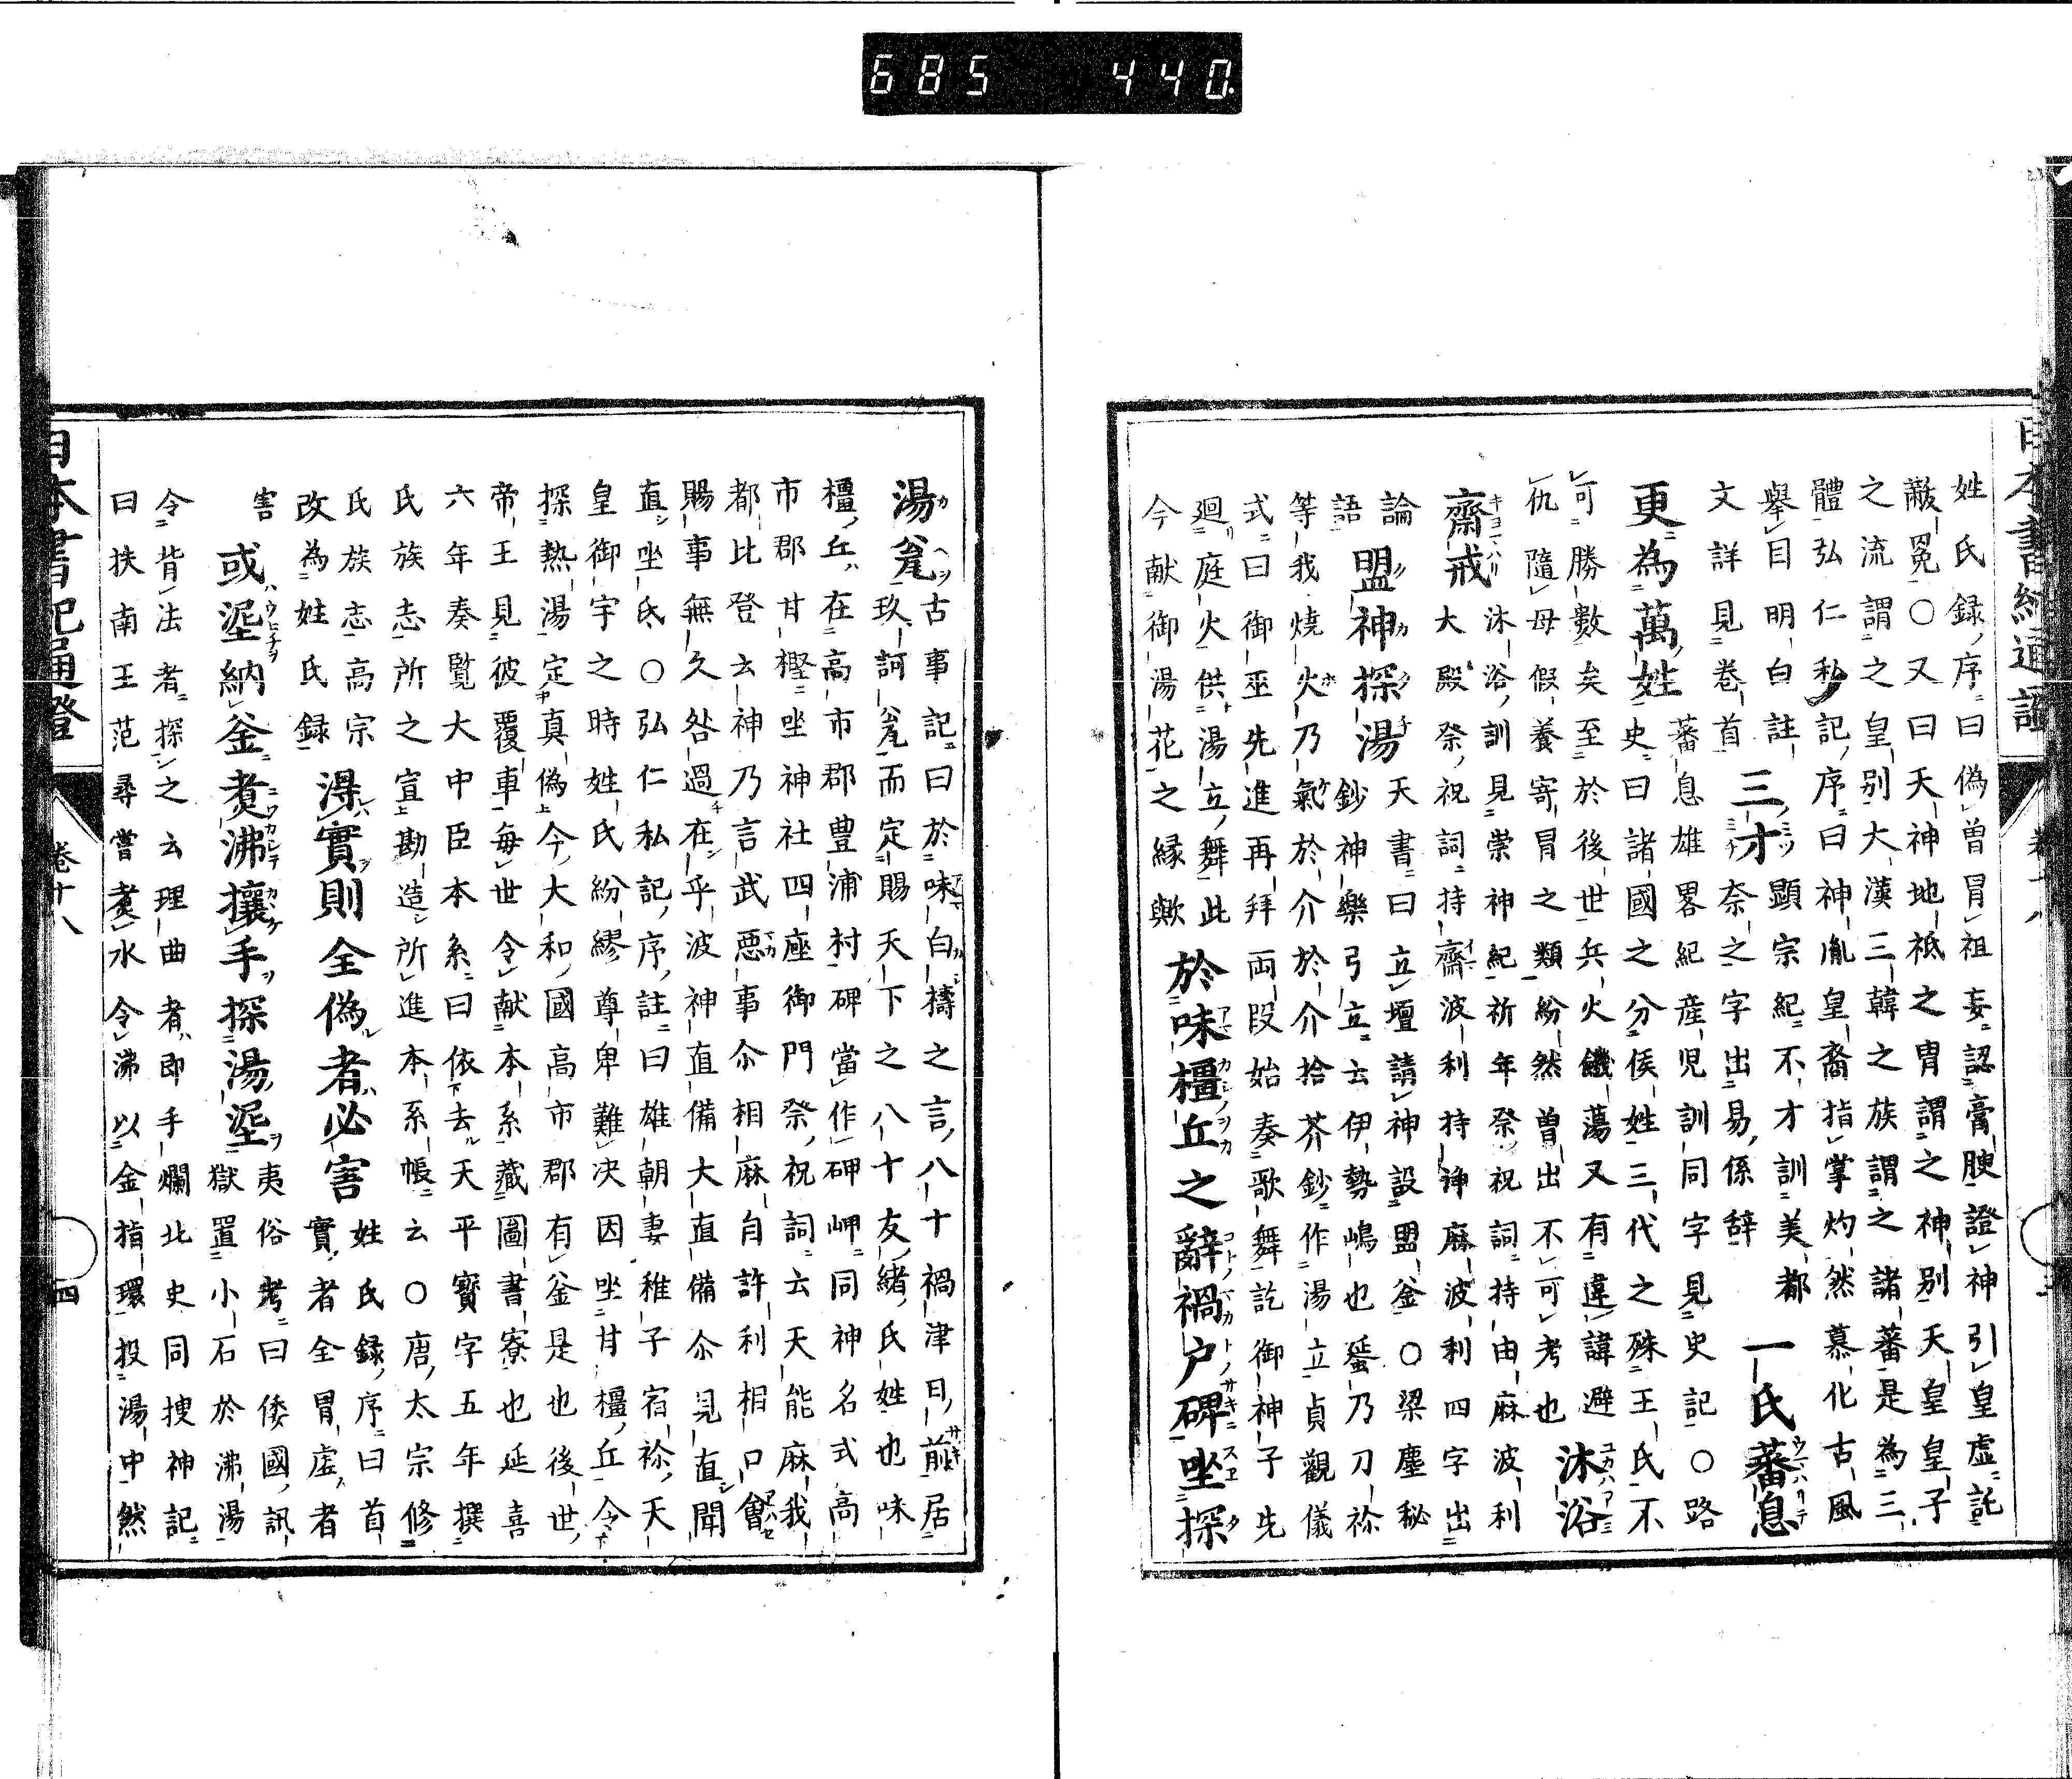 685 440
日本書紀通證
姓氏録序曰偽曽冒祖妄認膏腴證神引皇虛託
蔽冕○又曰天神地祇之冑謂之神別天皇皇子
之流謂之皇別大漢三韓之族謂之諸蕃是為三
體弘仁私記序曰神胤皇裔指掌灼然慕化古風
擧目明白註 三才顯宗紀不才訓美都
文詳見卷首 奈之字出易係辞 一氏蕃息
更為萬姓 蕃息雄畧紀産児訓同字見史記○路
史曰諸國之分侯姓三代之殊王氏不
可勝數矣至於後世兵火饑蕩又有違諱避
仇隨母假養寄冒之類紛然曽出不可考也 沐浴
齋戒 沐浴訓見崇神紀祈年祭祝詞持由麻波利
大殿祭祝詞持齋波利持諍麻波利四字出
論語 盟神探湯 天書曰立壇請神設盟釜○梁塵秘
鈔神樂弓立云伊勢嶋也蜑乃刀祢
等我燒火乃氣於介於介拾芥鈔作湯立貞觀儀
式曰御巫先進再拜両段始奏歌舞訖御神子先
廻庭火供湯立舞此
今献御湯花之縁歟 於味橿丘之辭禍戸碑坐探
湯瓮 古事記曰於味白檮之言八十禍津日前居
玖訶瓮而定賜天下之八十友緒氏姓也味
橿丘在高市郡豊浦村碑當作碑岬同神名式高
市郡甘樫坐神社四座御門祭祝詞云天能麻我
都比登云神乃言武惡事尒相麻自許利相口會
賜事無久咎過在乎波神直備大直備尒見直聞
直坐氐○弘仁私記序註曰雄朝妻稚子宿祢天
皇御宇之時姓氏紛繆尊卑難決因坐甘橿丘令
探熱湯定真偽今大和國高市郡有釜是也後世
帝王見彼覆車毎世令献本系藏圖書寮也延喜
六年奏覧大中臣本系曰依去天平寳字五年撰
氏族志所之宣勘造所進本系帳云○唐太宗修
氏族志高宗
改為姓氏録 得實則全偽者必害 姓氏録序曰首
實者全冒虛者
害 或埿納釜煑沸攘手探湯埿 夷俗考曰倭國訊
獄置小石於沸湯
令背法者探之云理曲者即手爛北史同捜神記
曰扶南王范尋嘗煑水令沸以金指環投湯中然
日本書紀通證
卷十八
四